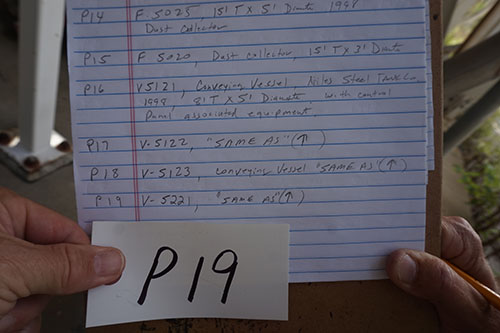 P14 F 5025 15' T X 5' Diamte 1998
Dust Collector
P15 F 5020, Dust collector, 15' T X 3' Diamte
P16 V5121, Conveying Vessel Niles Steel Tank Co
1998, 8' T X 5' Diamete with control
Panel associated equipment.
P17 V-5122, "SAME AS" (↑)
P18 V-5123, conveying Vessel "SAME AS" (↑)
P19 V-5221, "SAME AS" (↑)
P19